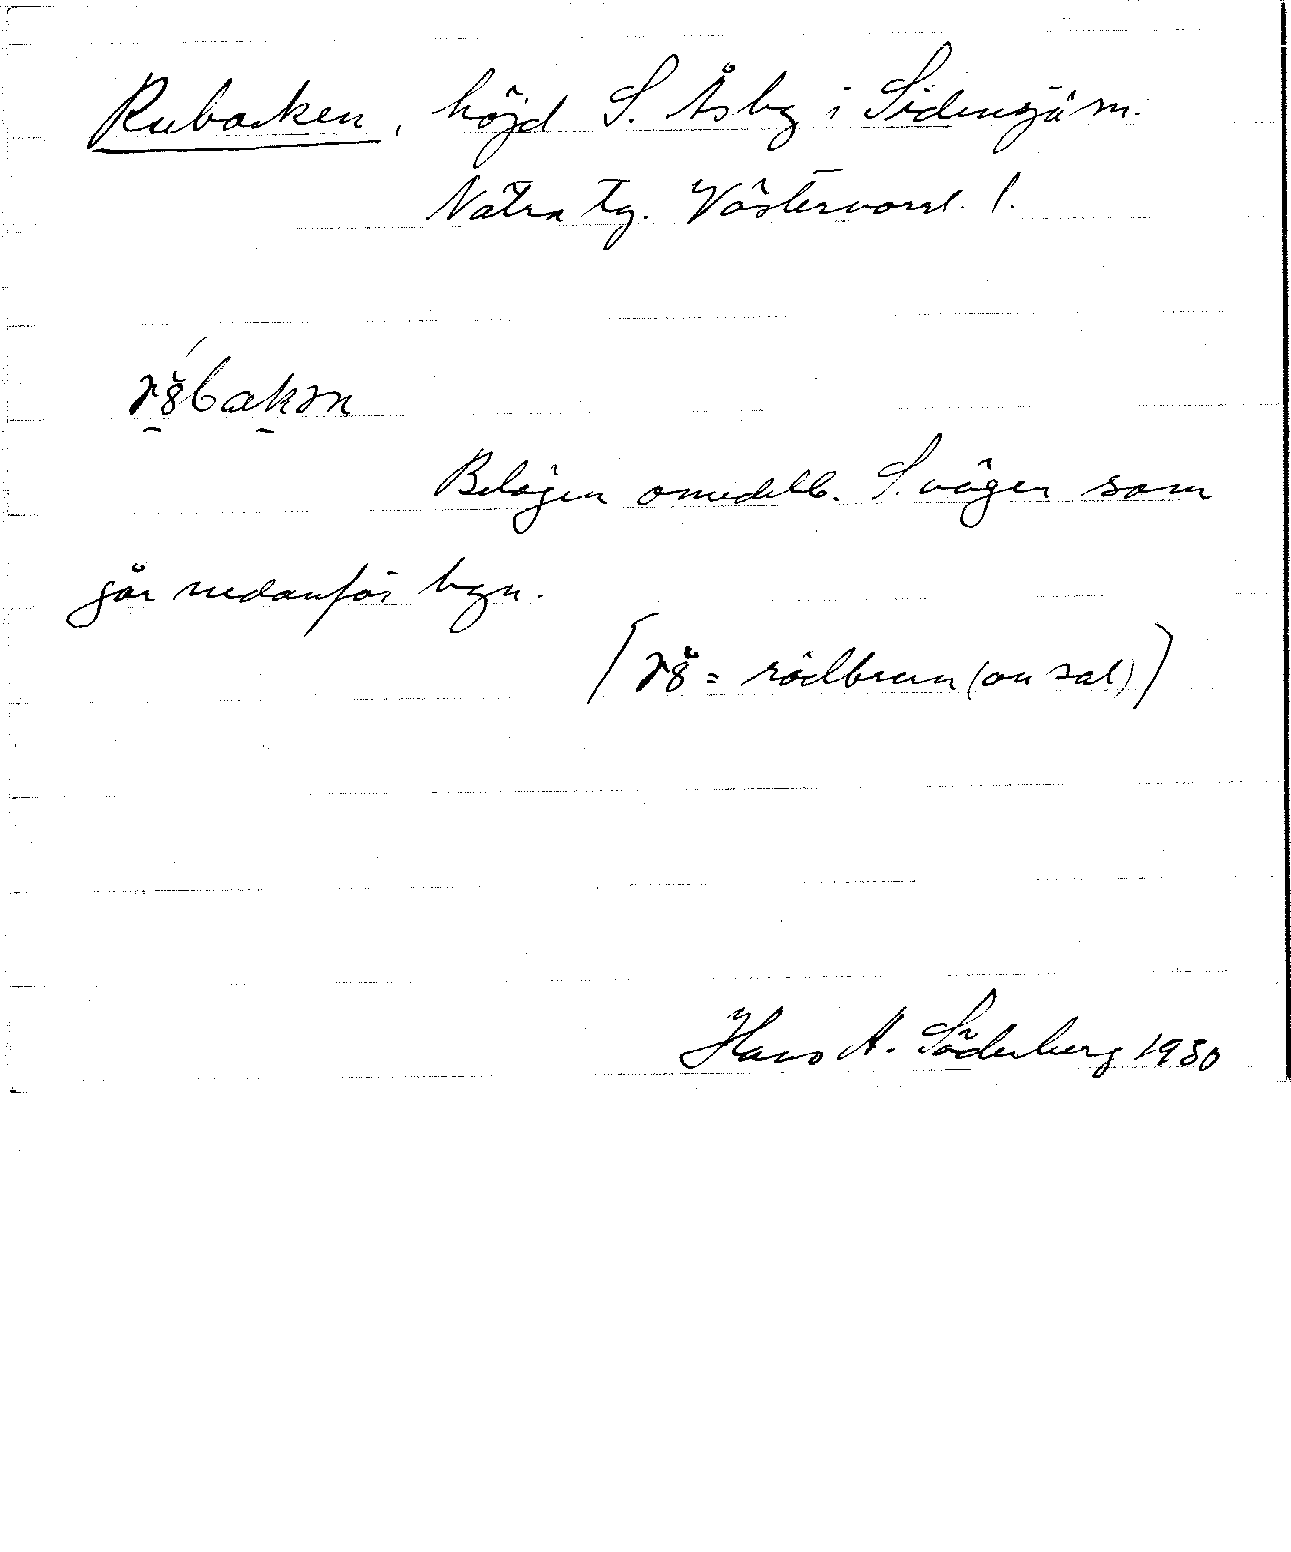 Rubacken, höjd S. Åsby i Sidensjö sn.
Nätra tg. Västernorrl. l.
rȣbakən
Belägen omedelb. S. vägen som
går nedanför byn.
(rȣ = rödbrun (om        ))
Hans A. Söderberg 1930